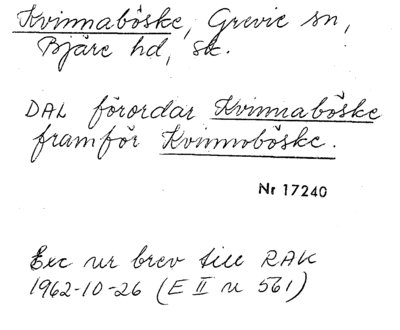 Kvinnaböske, Grevie sn,
Bjäre hd, sk.
DAL förordar Kvinnaböske
framför Kvinnoböske.
Nr 17240
Exc ur brev till RAK
1962-10-26 (E II u 561)